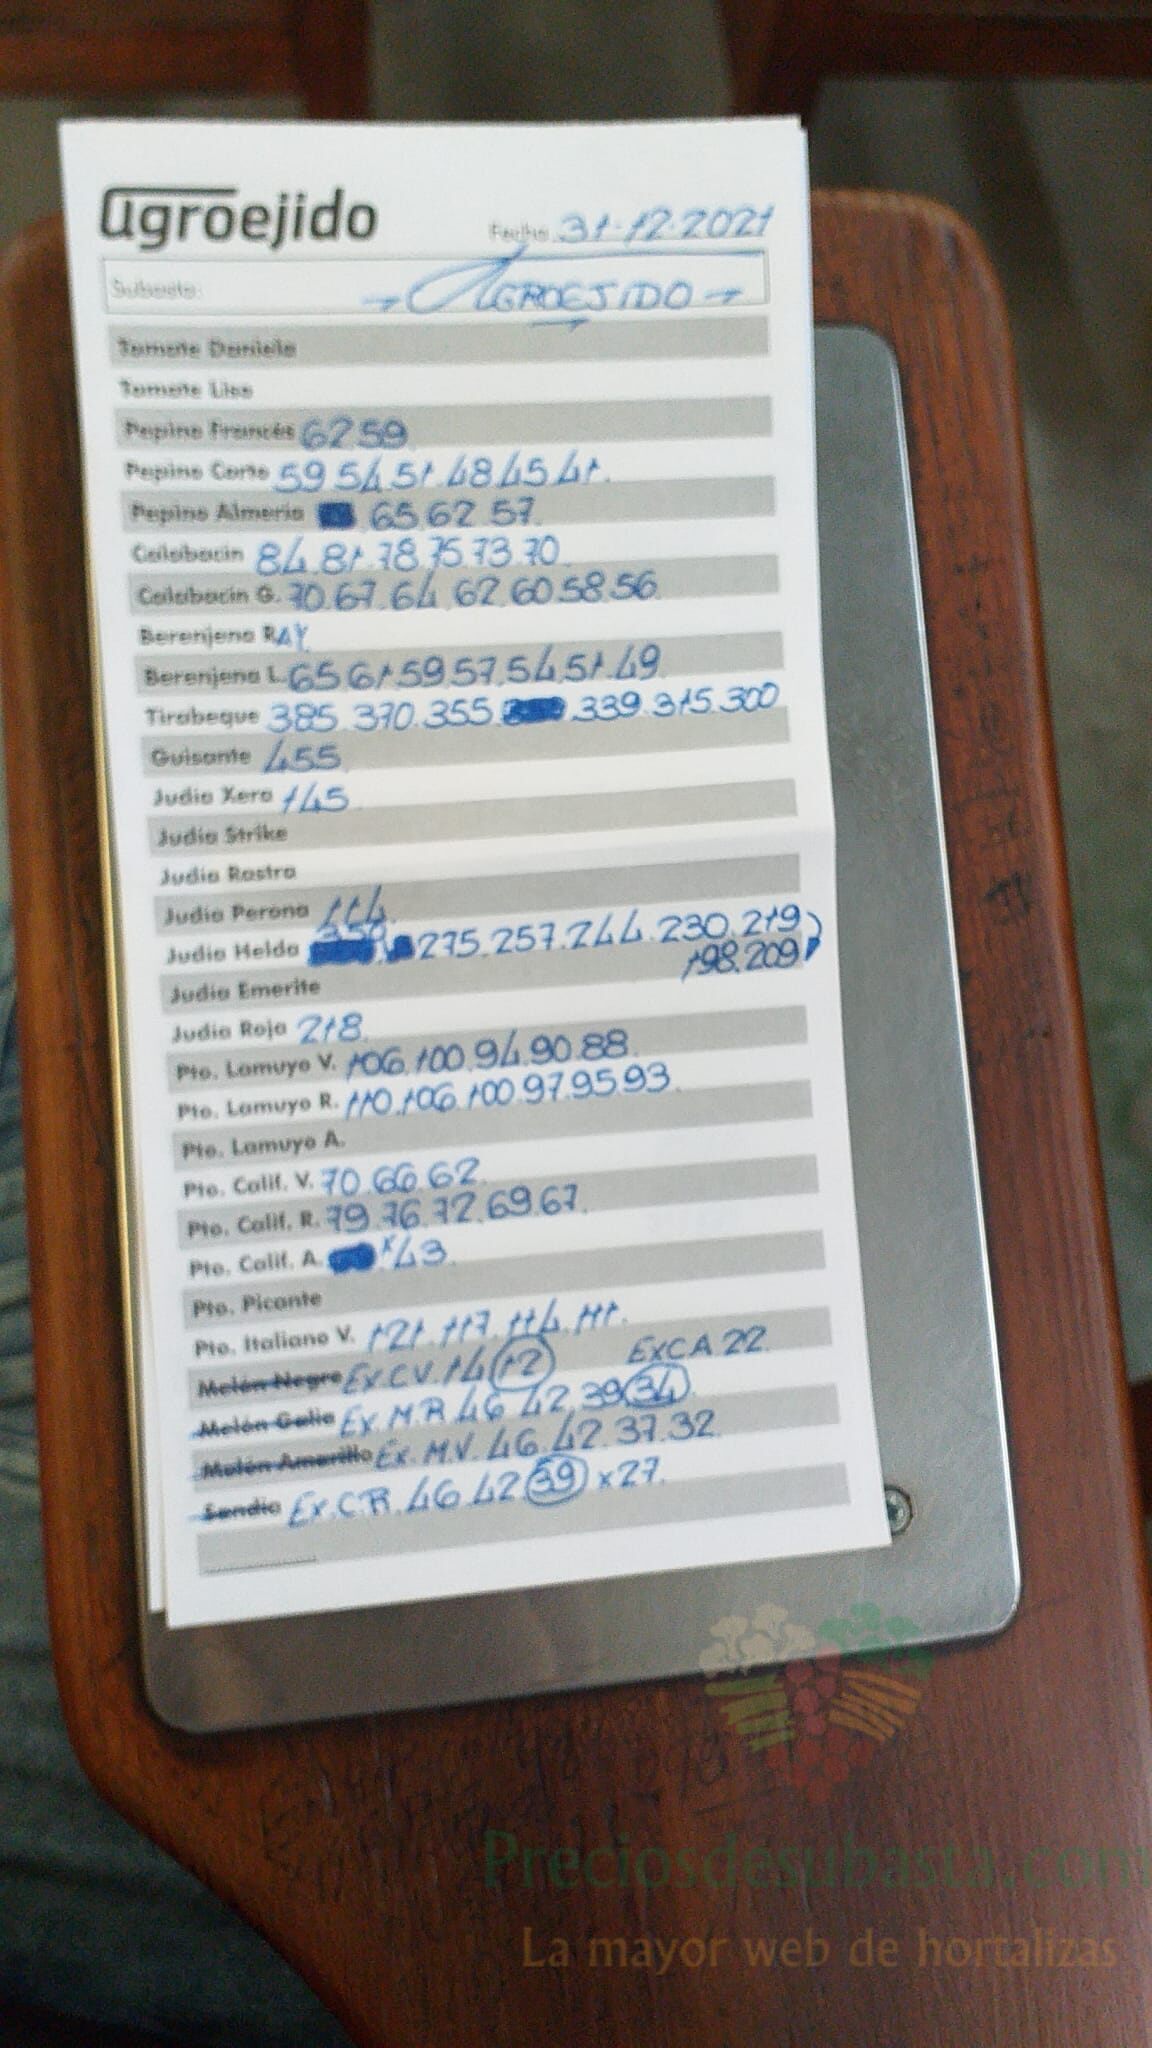 agroejido
Fecha 31-12-2021
Subasta: → AGROEJIDO →
Tomate Daniela
Tomate Liso
Pepino Francés 62 59
Pepino Corto 59 54.51.48 45 41.
Pepino Almeria 65.62.57.
Calabacin 84.81.78.75.73.70
Calabacin G. 70.67.64.62.60.58.56.
Berenjena RAY
Berenjena L. 65 61.59 57.54.51.49
Tirabeque 385.370.355 .339.315.300
Guisante 455
Judia Xera 145
Judia Strike
Judia Rastra
Judia Perona 114.
Judia Helda 275.257.244.230.219
198.209
Judia Emerite
Judia Roja 218.
Pto. Lamuyo V. 106.100.94.90.88.
Pto. Lamuyo R. 110.106.100.97.95.93.
Pto. Lamuyo A.
Pto. Calif. V. 70.66.62.
Pto. Calif. R. 79.76.72.69.67.
Pto. Calif. A. x43.
Pto. Picante
Pto. Italiano V. 121.117.114.111.
Melón Negro Ex.C.V. 14 12 EXCA 22.
Melón Galia Ex.M.R. 46 42.39 34.
Melón Amarillo Ex.M.V. 46.42.37.32
Sandia Ex.C.R. 46 42 39 x27.
Preciosdesubasta.com
La mayor web de hortalizas